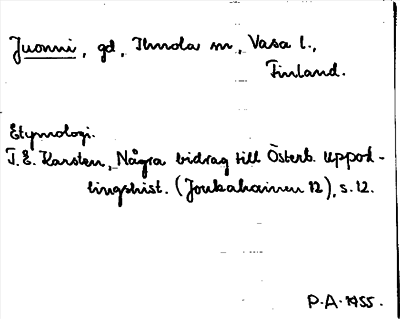 Juonni, gd, Ilmola sn, Vasa l.,
Finland.
Etymologi.
T.E. Karsten, Några bidrag till Österb. uppod-
lingshist. (Joukahainen 12), s. 12.
P.A. 1955.